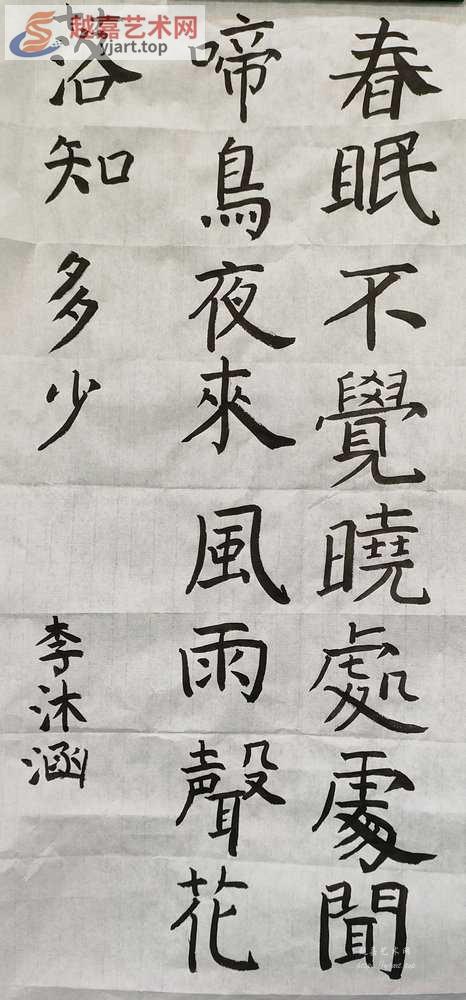 春眠不覺曉處處聞
啼鳥夜來風雨聲花
落知多少
李沐涵
越嘉艺术网
yjart.top